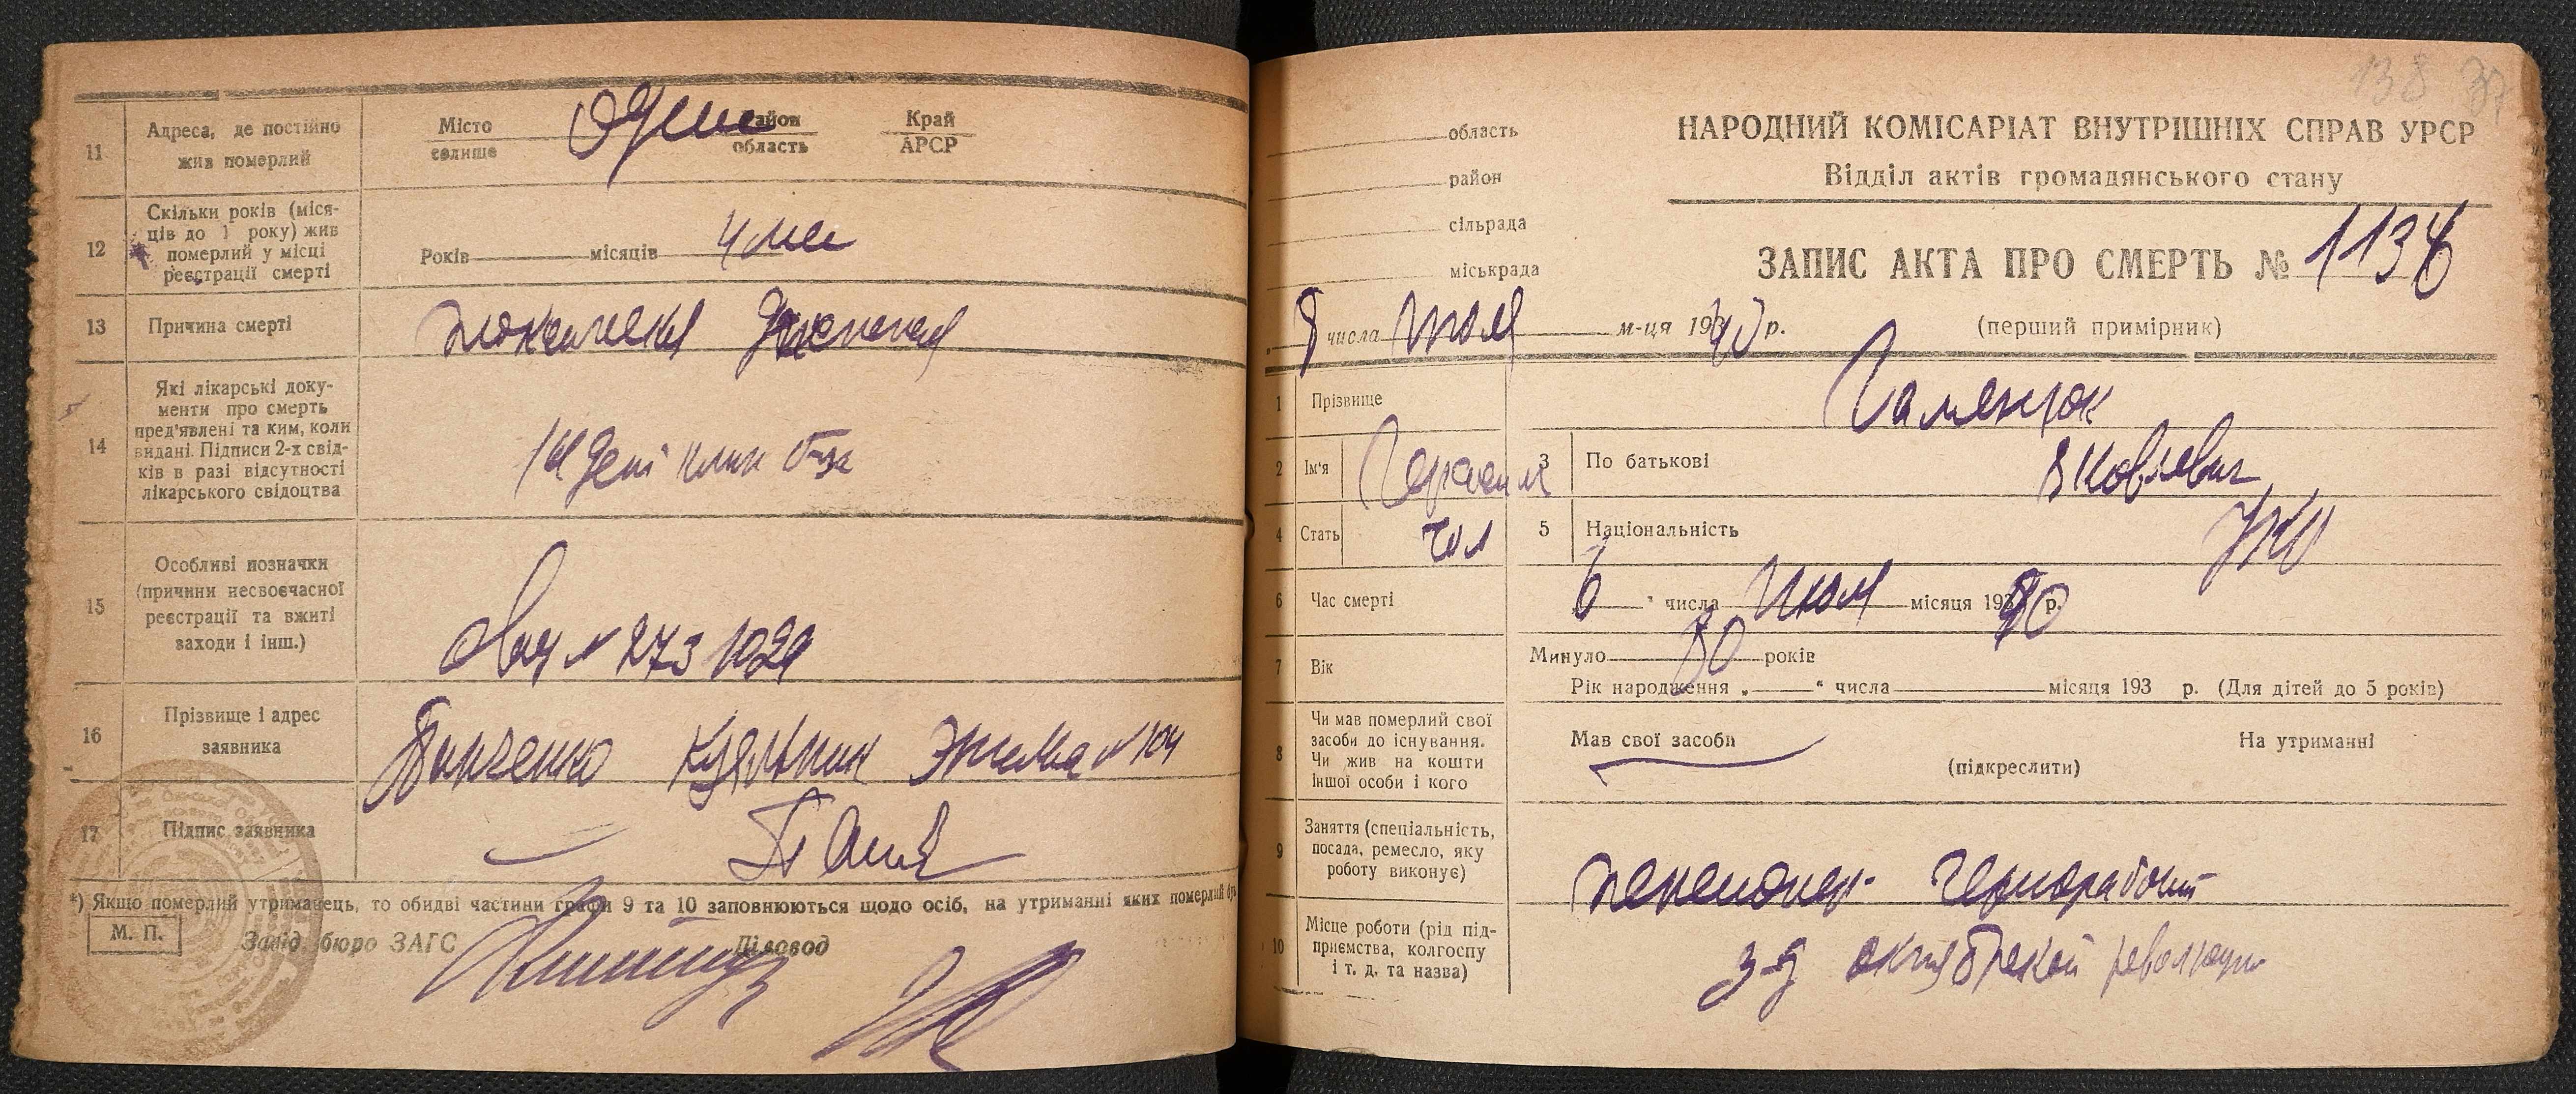 11
Адреса, де постійно
жив померлий
Місто
селище
Одесса
район
область
Край
АРСР
12
Скільки років (міся-
ців до 1 року) жив
померлий у місці
реєстрації смерті
Років
місяців
4 мес
13
Причина смерті
токсическая
14
Які лікарські доку-
менти про смерть
пред'явлені та ким, коли
видані. Підписи 2-х свід-
ків в разі відсутності
лікарського свідоцтва
клин б-ца
15
Особливі позначки
(причини несвоєчасної
реєстрації та вжиті
заходи і інш.)
№ 273 1029
16
Прізвище і адрес
заявника
Панченко Куяльник № 104
17
Підпис заявника
*) Якщо померлий утриманець, то обидві частини графи 9 та 10 заповнюються щодо осіб, на утриманні яких померлий
М. П.
Завід. бюро ЗАГС
Діловод
138 37
область
район
сільрада
міськрада
НАРОДНИЙ КОМІСАРІАТ ВНУТРІШНІХ СПРАВ УРСР
Відділ актів громадянського стану
ЗАПИС АКТА ПРО СМЕРТЬ № 1138
„8 числа Июля м-ця 1940 р.
(перший примірник)
1
Прізвище
Гаменюк
2
Ім'я
Герасим
3
По батькові
Яковлевич
4
Стать
чол
5
Національність
укр
6
Час смерті
6 " числа Июля місяця 1940 р.
7
Вік
Минуло 80 років
Рік народження „ " числа місяця 193 р. (Для дітей до 5 років)
8
Чи мав померлий свої
засоби до існування.
Чи жив на кошти
іншої особи і кого
Мав свої засоби
На утриманні
(підкреслити)
9
Заняття (спеціальність,
посада, ремесло, яку
роботу виконує)
пенсионер чернорабочий
10
Місце роботи (рід під-
приємства, колгоспу
і т. д. та назва)
з-д октябрской революции